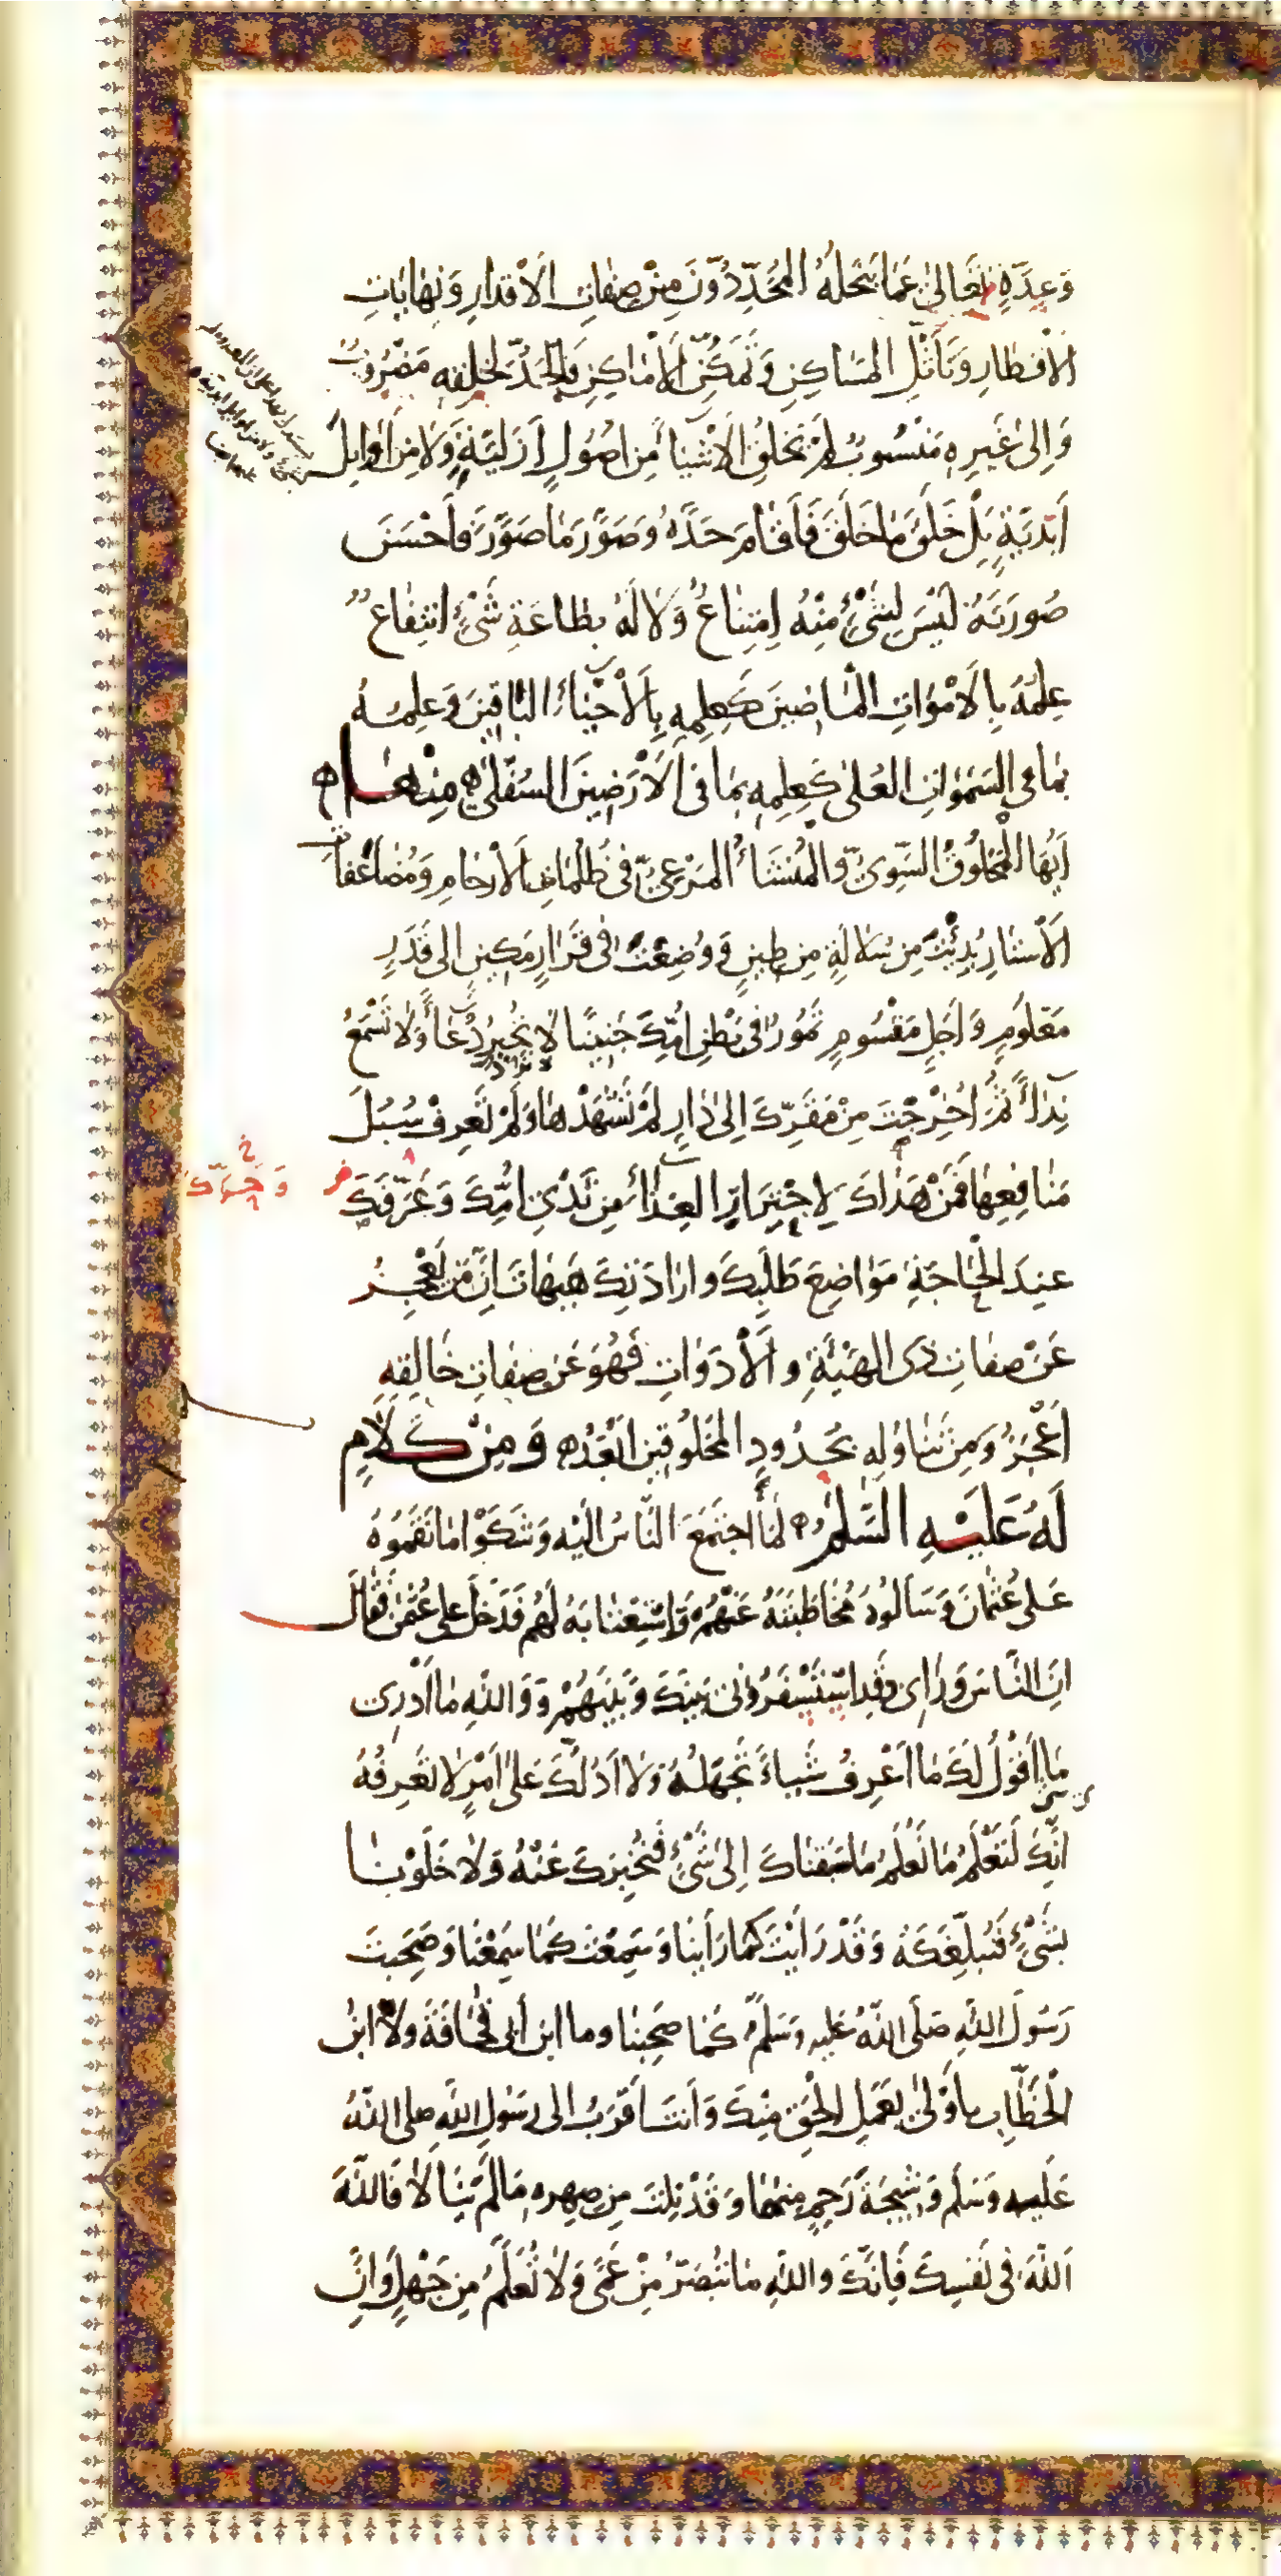 وَعِدَّةٍ تَعَالىٰ عَمَّا يَنْحَلُهُ المُحَدِّدُوْنَ مِنْ صِفَاتِ الْاَقْدَارِ وَنِهَايَاتِ
الْاَقْطَارِ وَتَأَثُّلِ المَسَاكِنِ وَتَمَكُّنِ الْاَمَاكِنِ فَالْحَدُّ لِخَلْقِهِ مَضْرُوْبٌ
وَاِلىٰ غَيْرِهِ مَنْسُوبٌ لَمْ يَخْلُقِ الْاَشْيَاءَ مِنْ اُصُوْلٍ اَزَلِيَّةٍ وَلَا مِنْ اَوَائِلَ
اَبَدِيَّةٍ بَلْ خَلَقَ مَا خَلَقَ فَاَقَامَ حَدَّهُ وَصَوَّرَ مَا صَوَّرَ فَاَحْسَنَ
صُورَتَهُ لَيْسَ لِشَىْءٍ مِنْهُ اِمْتِنَاعٌ وَلَا لَهُ بِطَاعَةِ شَىْءٍ انْتِفَاعٌ
عِلْمُهُ بِالْاَمْوَاتِ الْمَاضِينَ كَعِلْمِهِ بِالْاَحْيَاءِ البَاقِينَ وَعِلْمُهُ
بِمَا فِى السَّمٰوَاتِ العُلىٰ كَعِلْمِهِ بِمَا فِى الْاَرَضِينَ السُّفْلىٰ مِنْهَا
اَيُّهَا الْمَخْلُوْقُ السَّوِىُّ وَالْمُنْشَاءُ المَرْعِىُّ فِى ظُلُمَاتِ الْاَرْحَامِ وَمُضَاعَفَاتِ
الْاَسْتَارِ بُدِئْتَ مِنْ سُلَالَةٍ مِنْ طِيْنٍ وَوُضِعْتَ فِى قَرَارٍ مَكِيْنٍ اِلى قَدَرٍ
مَعْلُوْمٍ وَاَجَلٍ مَقْسُومٍ تَمُورُ فِى بَطْنِ اُمِّكَ جَنِيْنًا لَا تُحِيرُ دُعَاءً وَلَا تَسْمَعُ
نِدَاءً ثُمَّ اُخْرِجْتَ مِنْ مَقَرِّكَ اِلىٰ دَارٍ لَمْ تَشْهَدْهَا وَلَمْ تَعْرِفْ سُبُلَ
مَنَافِعِهَا فَمَنْ هَدَاكَ لِاجْتِرَارِ الغِذَاءِ مِنْ ثَدْىِ اُمِّكَ وَعَرَّفَكَ
وَحَرَّكَ
عِنْدَ الْحَاجَةِ مَوَاضِعَ طَلَبِكَ وَاِرَادَتِكَ هَيْهَاتَ اِنَّ مَنْ يَعْجِزُ
عَنْ صِفَاتِ ذِى الهَيْئَةِ وَالْاَدَوَاتِ فَهُوَ عَنْ صِفَاتِ خَالِقِهِ
اَعْجَزُ وَمِنْ تَنَاوُلِهِ بِحُدُودِ المَخْلُوقِينَ اَبْعَدُ وَمِنْ كَلَامٍ
لَهُ عَلَيْهِ السَّلٰمُ لَمَّا اجْتَمَعَ النَّاسُ اِلَيْهِ وَشَكَوْا مَا نَقَمُوْهُ
عَلى عُثْمَانَ وَسَأَلُوهُ مُخَاطَبَتَهُ عَنْهُمْ وَاسْتِعْتَابَهُ لَهُمْ فَدَخَلَ عَلى عُثْمٰنَ فَقَالَ
اِنَّ النَّاسَ وَرَاىِ وَقَدِ اسْتَسْفَرُوْنِى بَيْنَكَ وَبَيْنَهُمْ وَوَاللهِ مَا اَدْرِى
مَا اَقُوْلُ لَكَ مَا اَعْرِفُ شَيْاءً تَجْهَلُهُ وَلَا اَدُلُّكَ عَلىٰ اَمْرٍ لَا تَعْرِفُهُ
اِنَّكَ لَتَعْلَمُ مَا نَعْلَمُ مَا سَبَقْنَاكَ اِلىٰ شَىْءٍ فَنُخْبِرَكَ عَنْهُ وَلَا خَلَوْنَا
بِشَىْءٍ فَنُبَلِّغَكَهُ وَقَدْ رَاَيْتَ كَمَا رَاَيْنَا وَسَمِعْتَ كَمَا سَمِعْنَا وَصَحِبْتَ
رَسُوْلَ اللهِ صَلَّى اللهُ عَلَيْهِ وَسَلَّمَ كَمَا صَحِبْنَا وَمَا ابْنُ اَبِى قُحَافَةَ وَلَا ابْنُ
الْخَطَّابِ بِاَوْلىٰ بِعَمَلِ الْحَقِّ مِنْكَ وَاَنْتَ اَقْرَبُ اِلى رَسُوْلِ اللهِ صَلى اللهُ
عَلَيْهِ وَسَلَّمَ وَشِيْجَةَ رَحِمٍ مِنْهُمَا وَقَدْ نِلْتَ مِنْ صِهْرِهِ مَا لَمْ يَنَالَا فَاللهَ
اَللهَ فِى نَفْسِكَ فَاِنَّكَ وَاللهِ مَا تُبَصَّرُ مِنْ عَمًى وَلَا تُعَلَّمُ مِنْ جَهْلٍ وَاِنَّ